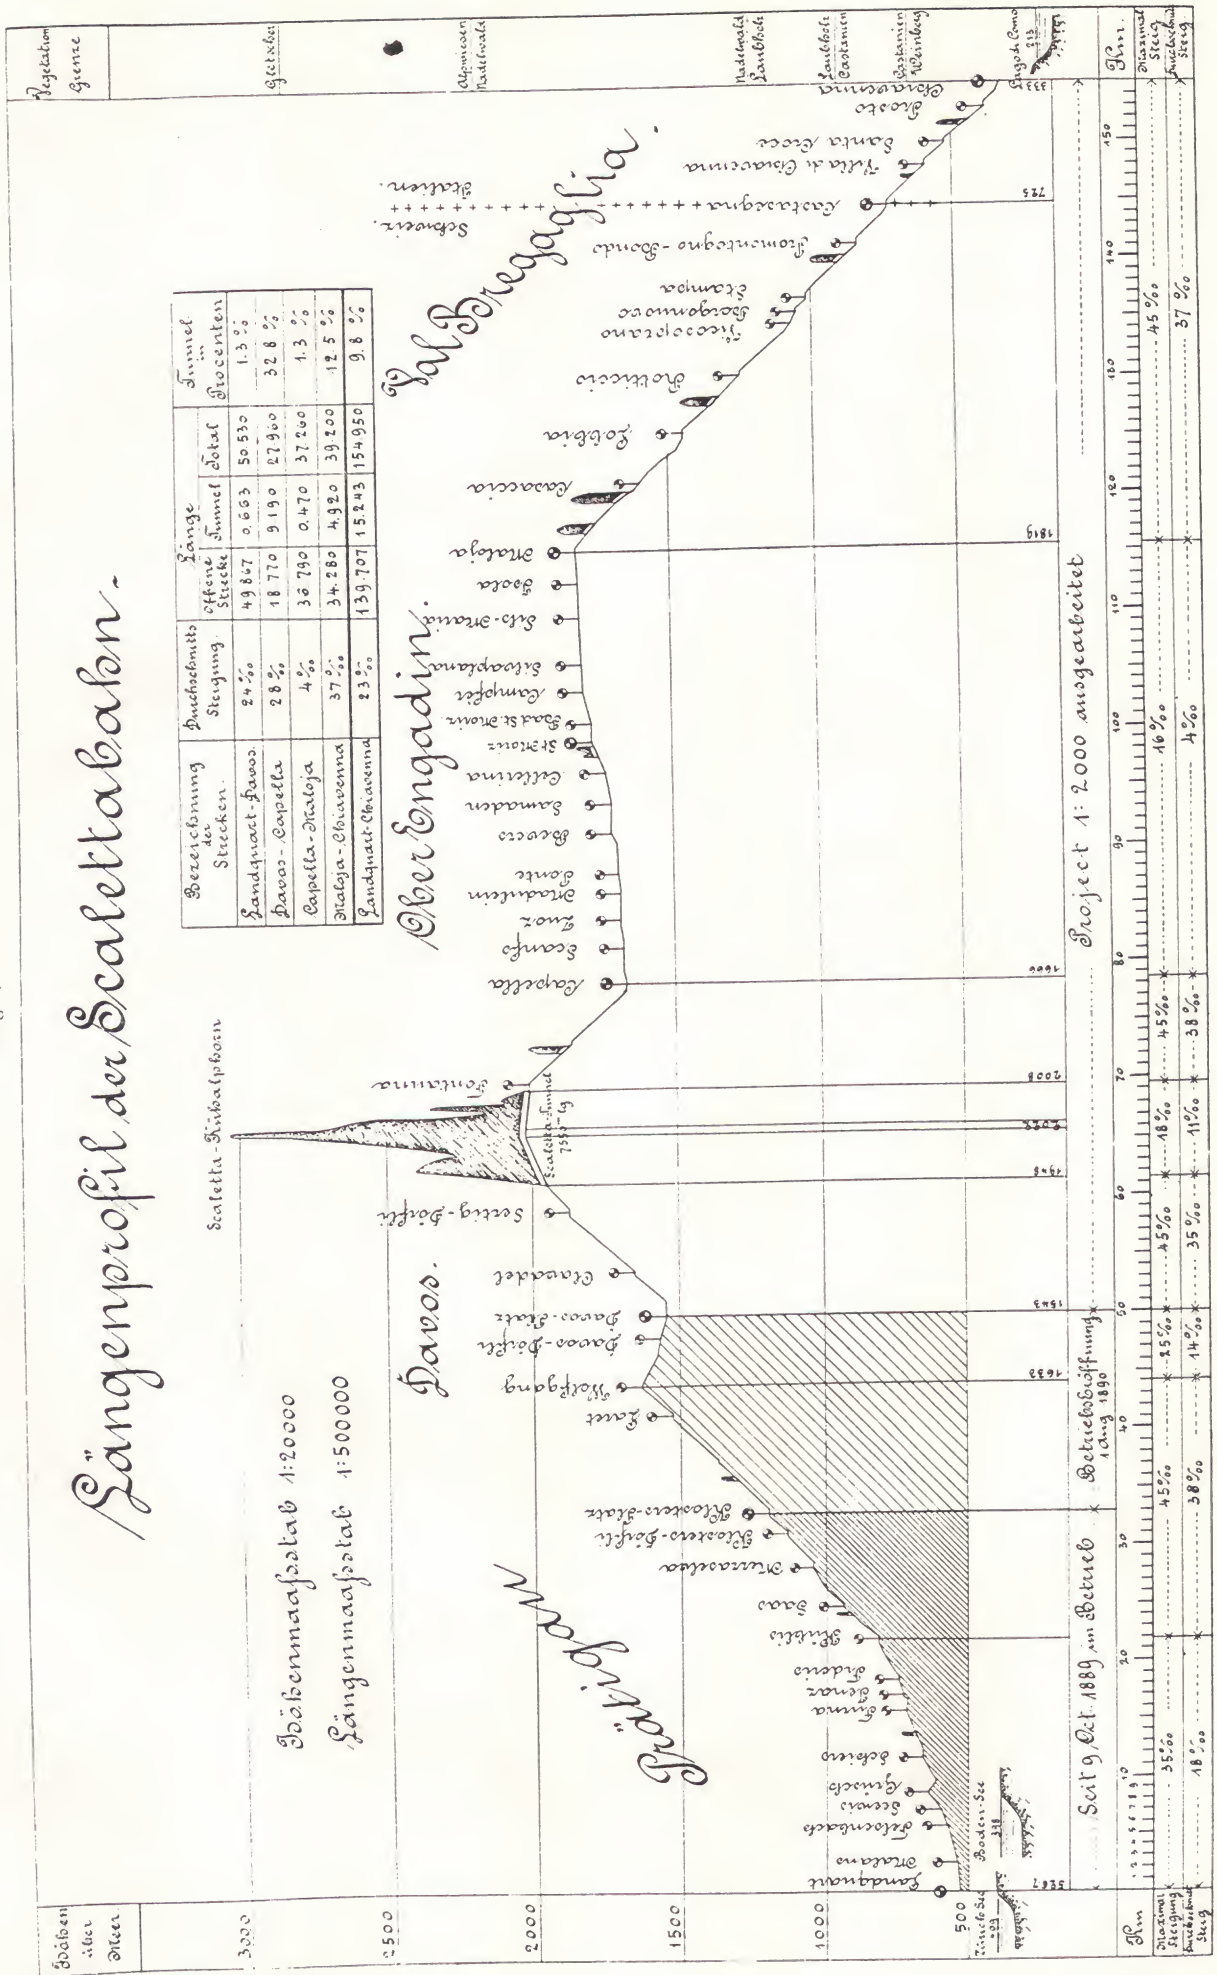 Längenprofil der Scalettabahn.
Höhenmaaßstab 1:20000
Längenmaaßstab 1:500000
Bezeichnung der Strecken.
Durchschnitts Steigung.
Länge
Offene Strecke
Tunnel
Total
Tunnel in Procenten
Landquart-Davos. 24‰ 49867 0.663 50.530 1.3%
Davos-Capella 28‰ 18770 9190 27960 32.8%
Capella-Maloja 4‰ 36790 0.470 37260 1.3%
Maloja-Chiavenna 37‰ 34.280 4.920 39.200 12.5%
Landquart-Chiavenna 23‰ 139.707 15.243 154950 9.8%
Höhen über Meer
3000
2500
2000
1500
1000
500
Vegetation Grenze
Gletscher
Alpwiesen
Nadelwald
Nadelwald
Laubholz
Laubholz
Castanien
Castanien
Weinberg
Lago di Como
213
Prätigau
Davos.
Ober Engadin.
Val Bregaglia.
Scaletta-Kühalphorn
Scaletta-Tunnel
7550 lg
Schweiz.
Italien.
Landquart
Malans
Felsenbach
Seewis
Grüsch
Schiers
Furna
Jenaz
Fideris
Küblis
Saas
Mezzaselva
Klosters-Dörfli
Klosters-Platz
Laret
Wolfgang
Davos-Dörfli
Davos-Platz
Clavadel
Sertig-Dörfli
Fontanna
Capella
Scanfs
Zuoz
Madulein
Ponte
Bevers
Samaden
Cellerina
St Moriz
Bad St. Moriz
Campfér
Silvaplana
Sils-Maria
Isola
Maloja
Casaccia
Löbbia
Rotticcio
Vicosoprano
Borgonuovo
Stampa
Promontogno-Bondo
Castasegna
Villa di Chiavenna
Santa Croce
Prosto
Chiavenna
Zürich See
409
Boden-See
398
1543
1633
1948
2008
1666
1819
725
333
Seit 9 Oct. 1889 im Betrieb
Betriebseröffnung
1 Aug 1890
Project 1:2000 ausgearbeitet
Km
1 2 3 4 5 6 7 8 9 10 20 30 40 50 60 70 80 90 100 110 120 130 140 150
Km.
Maximal Steigung
35‰ 45‰ 25‰ 45‰ 18‰ 45‰ 16‰ 45‰
Maximal Steig
Durchschnitt Steig
18‰ 38‰ 14‰ 35‰ 11‰ 38‰ 4‰ 37‰
Durchschnitt Steig